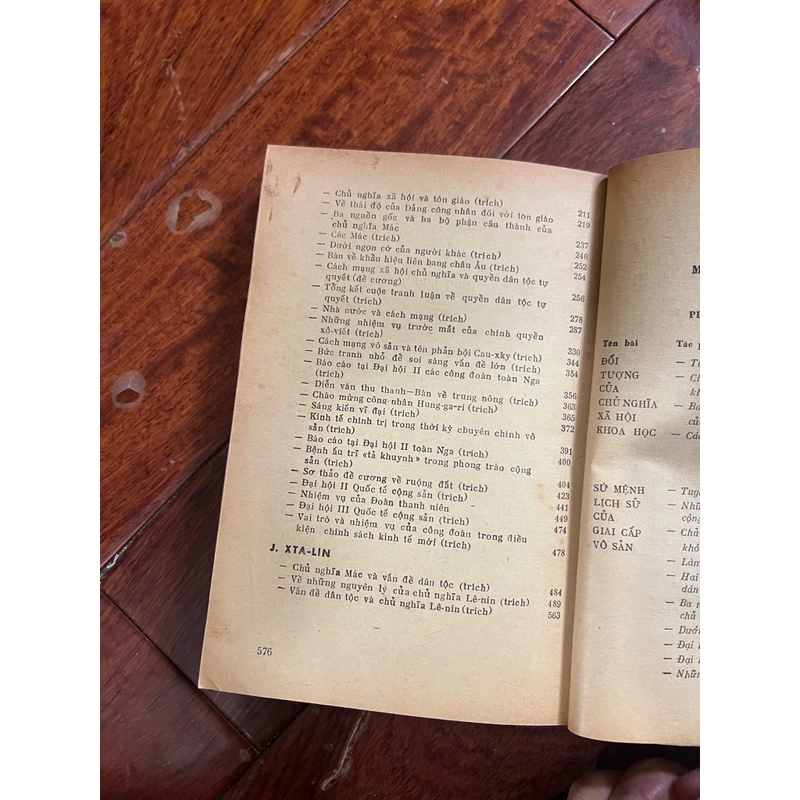 — Chủ nghĩa xã hội và tôn giáo (trích) 211
— Về thái độ của Đảng công nhân đối với tôn giáo 219
— Ba nguồn gốc và ba bộ phận cấu thành của
chủ nghĩa Mác 237
— Các Mác (trích) 246
— Dưới ngọn cờ của người khác (trích) 252
— Bàn về khẩu hiệu liên bang châu Âu (trích) 254
— Cách mạng xã hội chủ nghĩa và quyền dân tộc tự
quyết (đề cương) 256
— Tổng kết cuộc tranh luận về quyền dân tộc tự
quyết (trích) 278
— Nhà nước và cách mạng (trích) 287
— Những nhiệm vụ trước mắt của chính quyền
xô-viết (trích) 330
— Cách mạng vô sản và tên phản bội Cau-xky (trích) 344
— Bức tranh nhỏ để soi sáng vấn đề lớn (trích) 354
— Báo cáo tại Đại hội II các công đoàn toàn Nga
(trích) 356
— Diễn văn thu thanh—Bàn về trung nông (trích) 363
— Chào mừng công nhân Hung-ga-ri (trích) 365
— Sáng kiến vĩ đại (trích) 372
— Kinh tế chính trị trong thời kỳ chuyên chính vô
sản (trích) 391
— Báo cáo tại Đại hội II toàn Nga (trích) 400
— Bệnh ấu trĩ «tả khuynh» trong phong trào cộng
sản (trích) 404
— Sơ thảo đề cương về ruộng đất (trích) 423
— Đại hội II Quốc tế cộng sản (trích) 441
— Nhiệm vụ của Đoàn thanh niên 449
— Đại hội III Quốc tế cộng sản (trích) 474
— Vai trò và nhiệm vụ của công đoàn trong điều
kiện chính sách kinh tế mới (trích) 478
J. XTA-LIN
— Chủ nghĩa Mác và vấn đề dân tộc (trích) 484
— Về những nguyên lý của chủ nghĩa Lê-nin (trích) 489
— Vấn đề dân tộc và chủ nghĩa Lê-nin (trích) 563
576
M
Tên bài Tác
ĐỐI
TƯỢNG
CỦA
CHỦ NGHĨA — Ba
XÃ HỘI của
KHOA HỌC — Các
SỨ MỆNH — Tuyê
LỊCH SỬ — Nhữ
CỦA cộng
GIAI CẤP — Chủ
VÔ SẢN khô
— Làm
— Hai
dân
— Ba n
chủ
— Dưới
— Đại
— Đại
— Nhữn